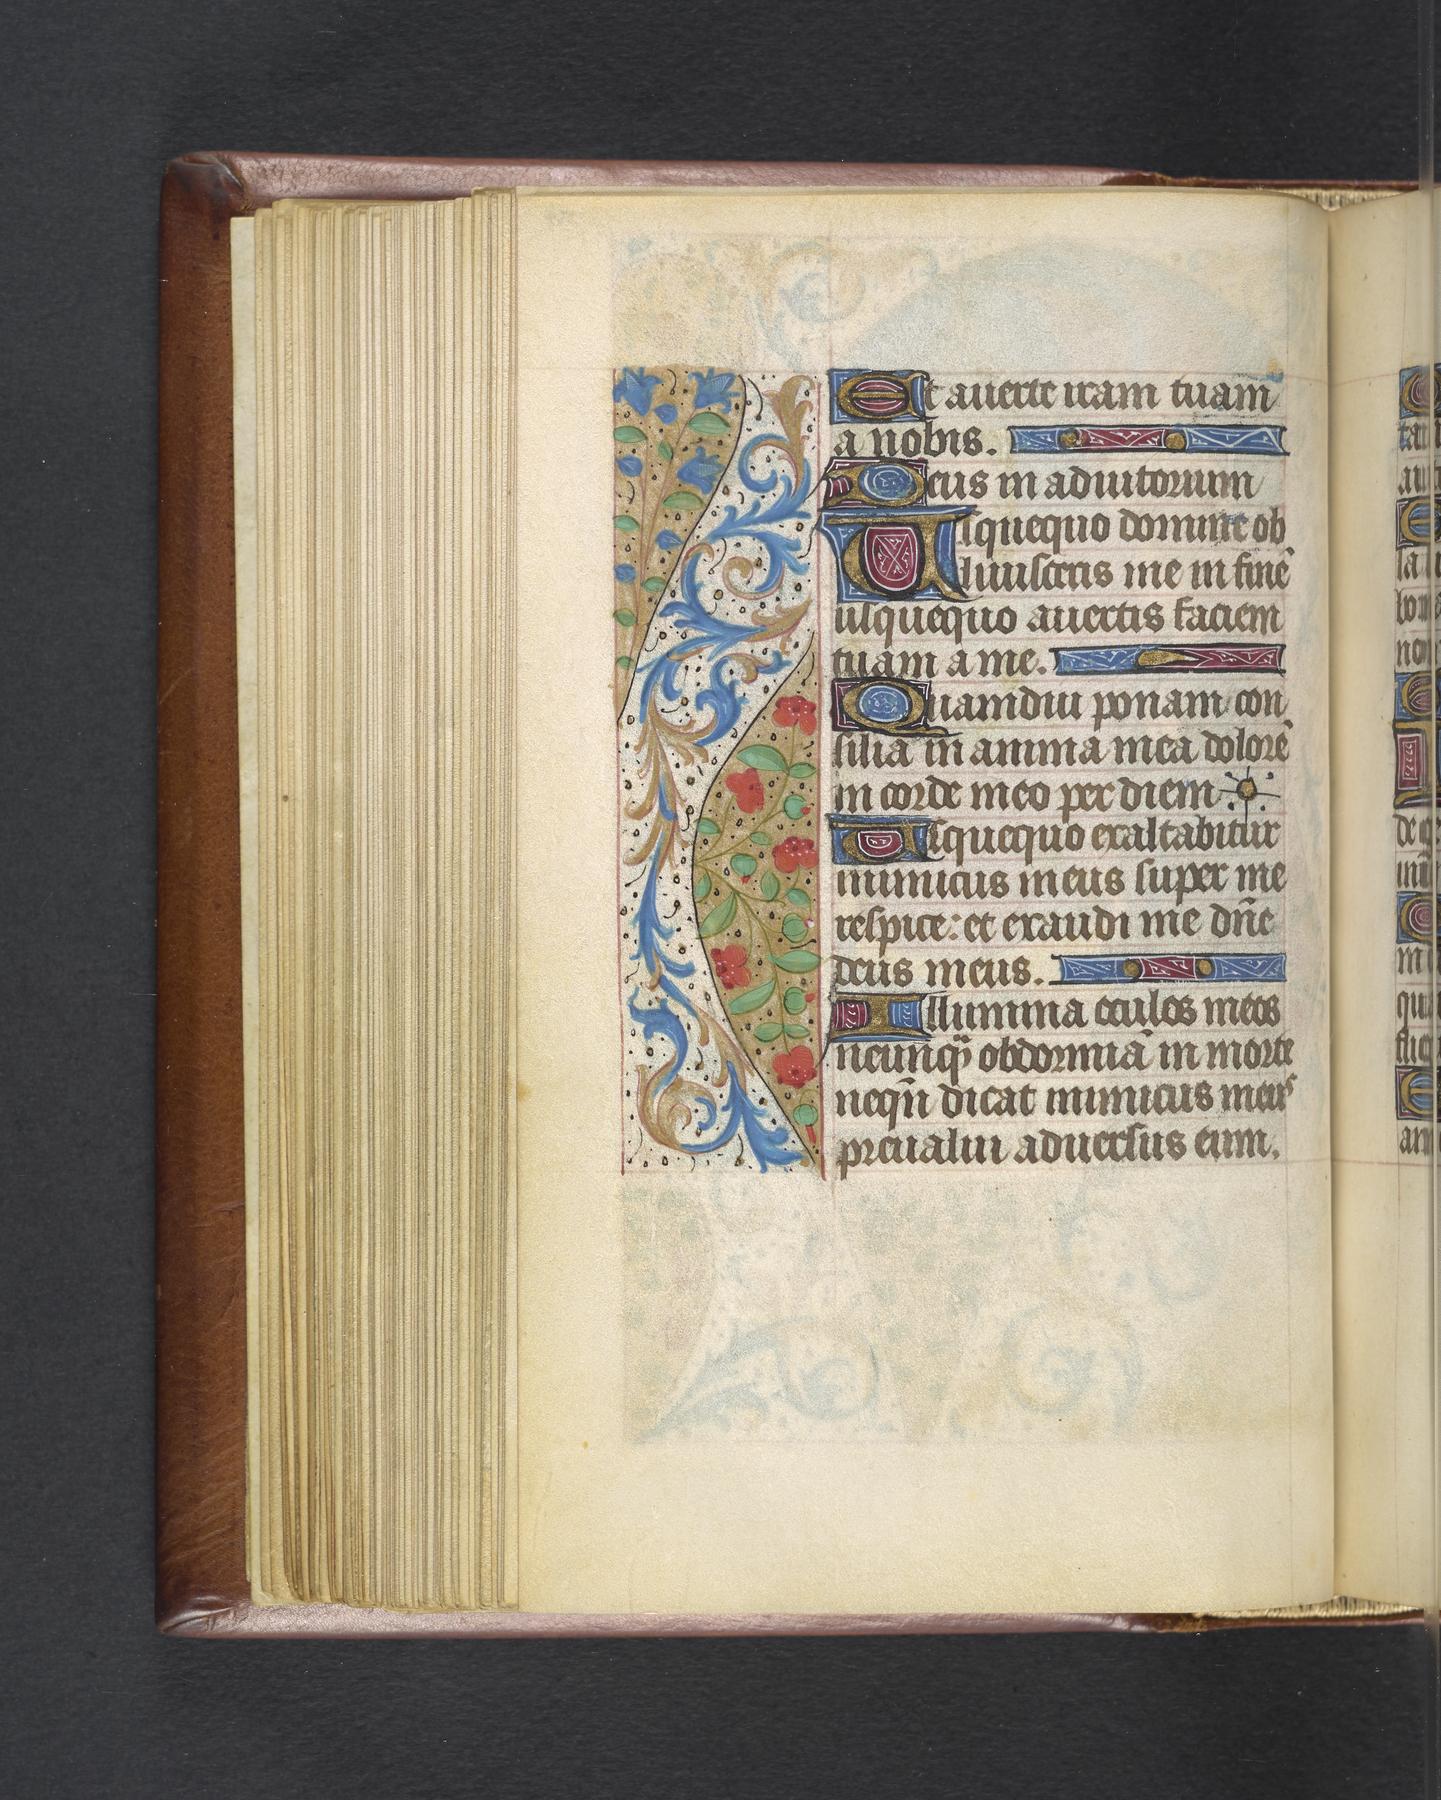 Et auerte iram tuam
a nobis.
Deus in adiutorium
Usquequo domine ob
liuisceris me in finē
usquequo auertis faciem
tuam a me.
Quamdiu ponam con
silia in anima mea dolorē
in corde meo per diem
Usquequo exaltabitur
inimicus meus super me
respice: et exaudi me dn̄e
deus meus.
Illumina oculos meos
neunqꝫ obdormiā in morte
neqn̄ dicat inimicus meus
preualui aduersus eum.